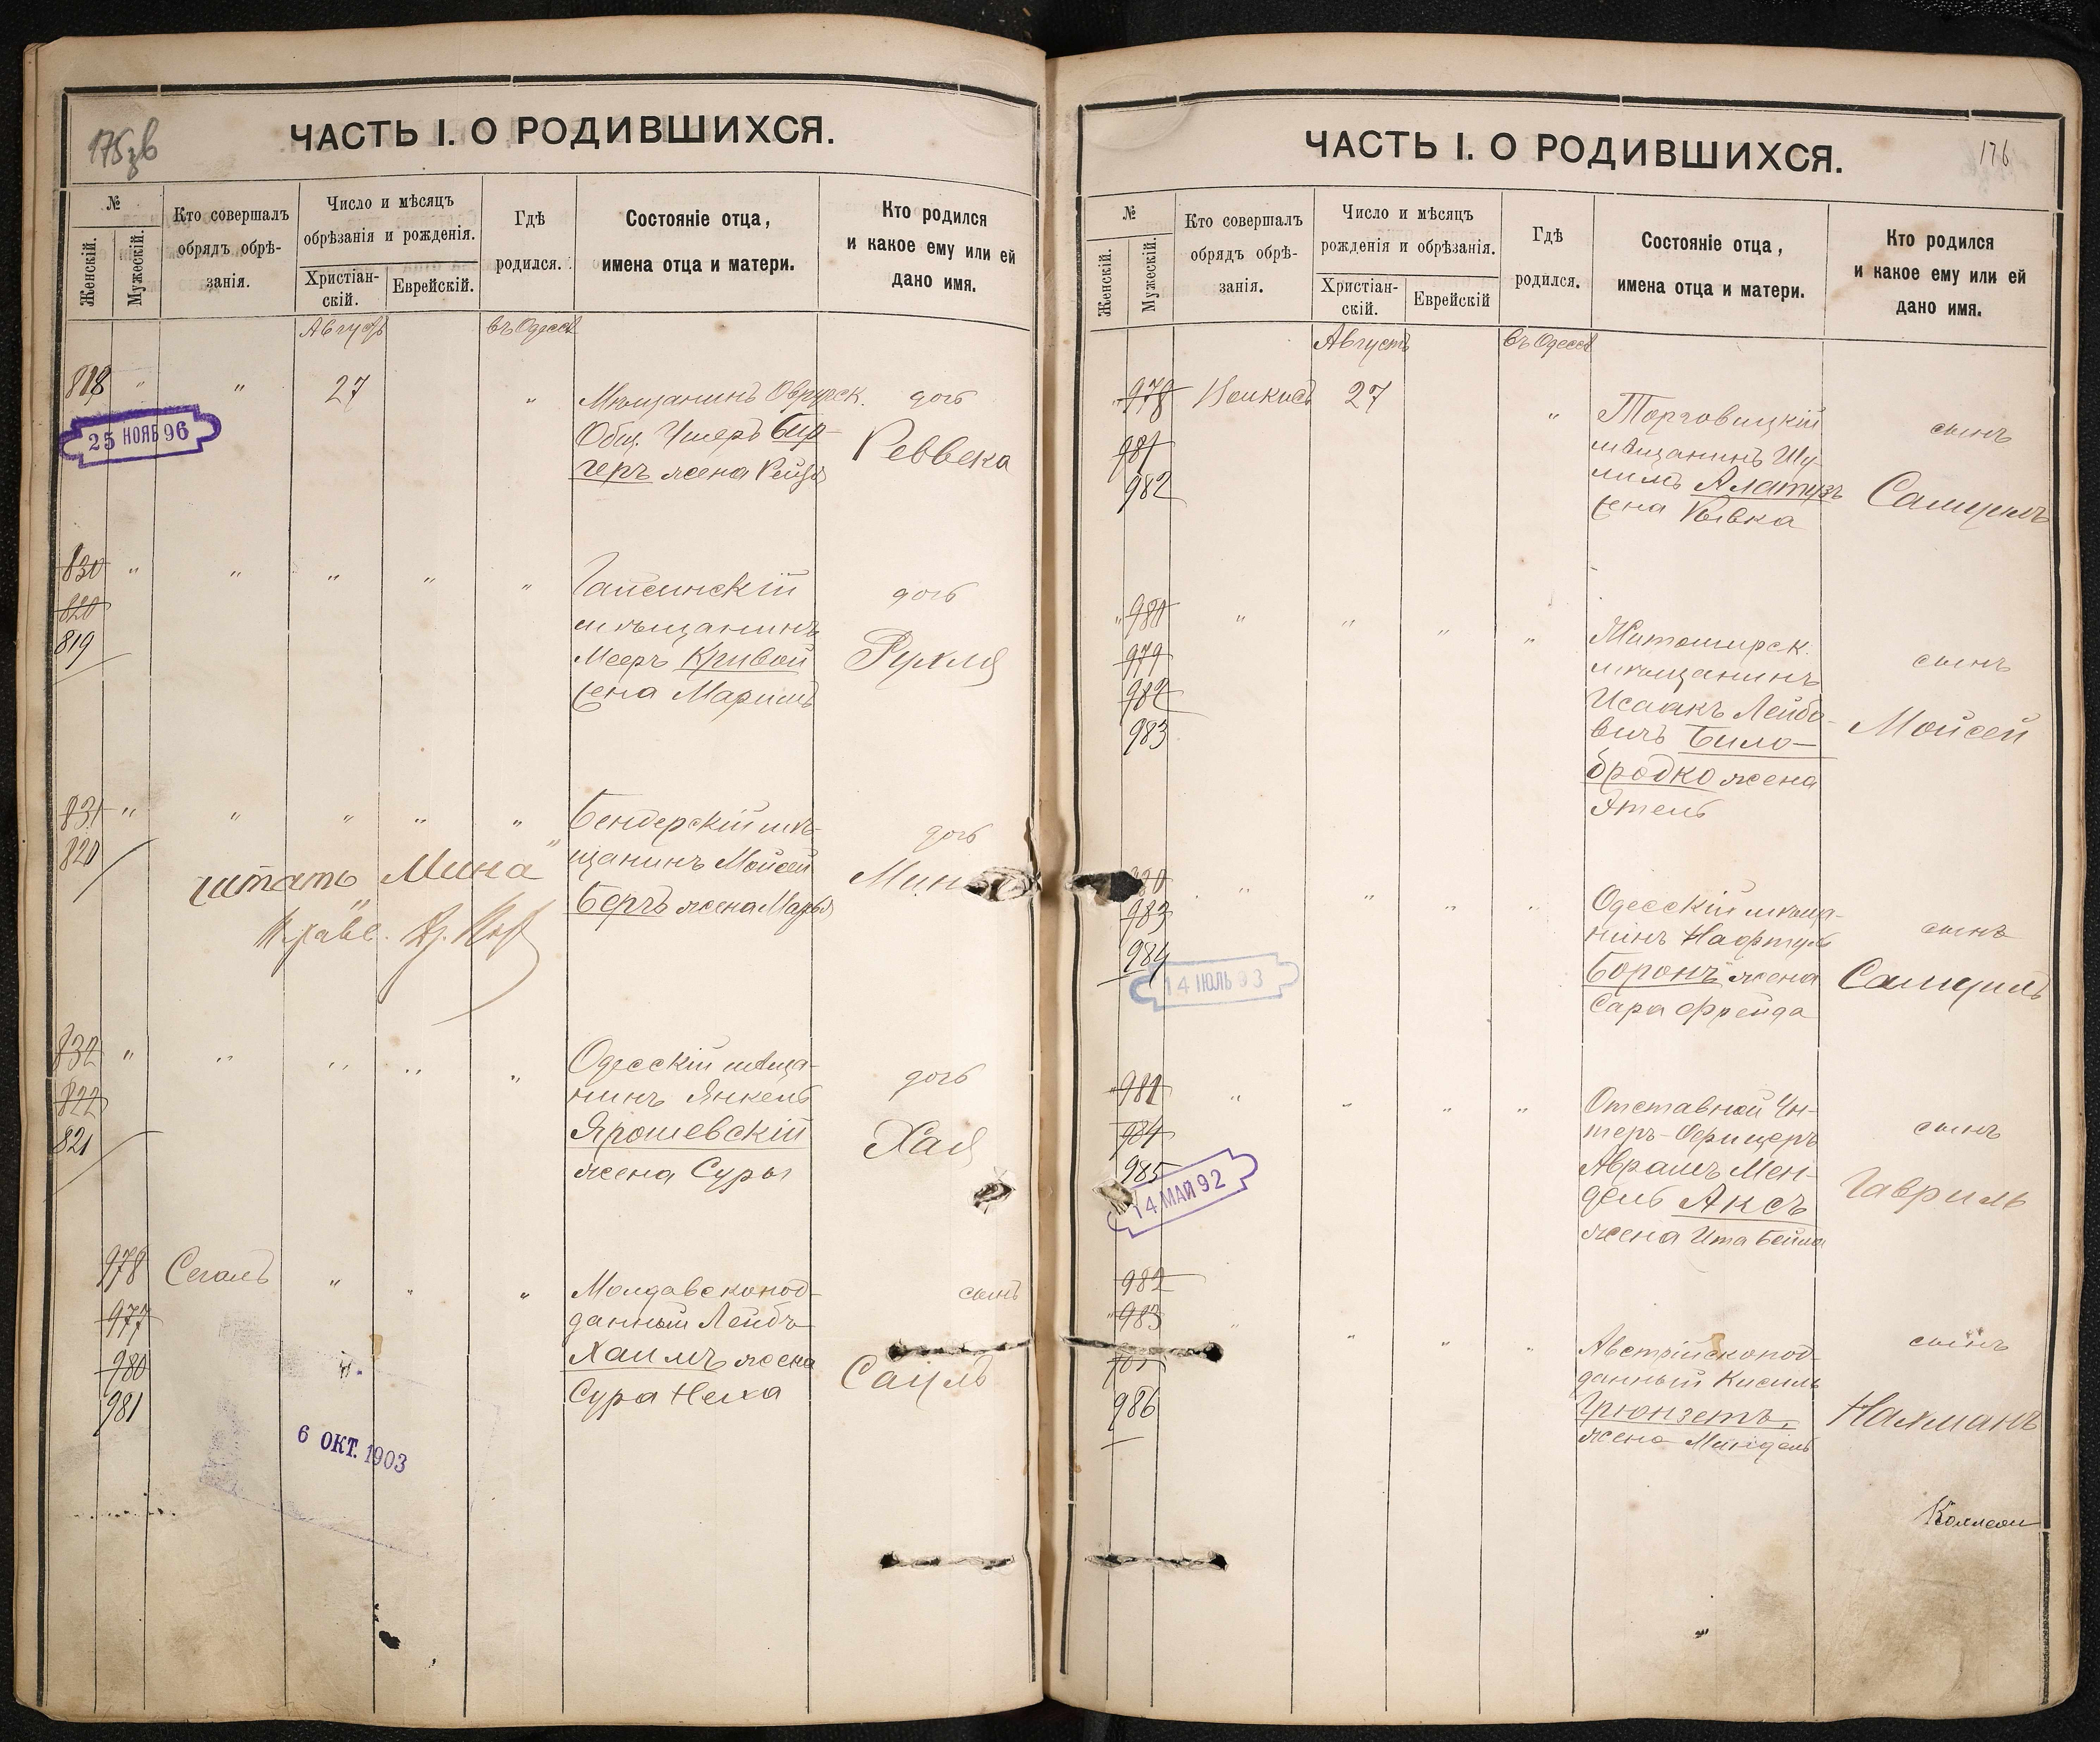 175 зв
ЧАСТЬ I. О РОДИВШИХСЯ.
№
Женскій.
Мужескій.
Кто совершалъ
обрядъ обрѣ-
занія.
Число и мѣсяцъ
обрѣзанія и рожденія.
Христіан-
скій.
Еврейскій.
Гдѣ
родился.
Состояніе отца,
имена отца и матери.
Кто родился
и какое ему или ей
дано имя.
Августъ
въ Одессѣ
818 " " 27 "
25 НОЯБ 96
Мѣщанинъ Овручск.
Общ. Умеръ Бир-
геръ жена Рейзя
дочь
Реввека
830 " " " " "
820
819
Гайсинскій
мѣщанинъ
Мееръ Кривой
жена Маримъ
дочь
Рухля
831 " " " " "
820
Бендерскій мѣ-
щанинъ Мойсей
Бергъ жена Марья
дочь
Мина
читать "Мина"
832 " " " " "
822
821
Одесскій мѣща-
нинъ Янкель
Ярошевскій
жена Суры
дочь
Хая
978 Сегаль " " "
977
980
981
Молдавскопод-
данный Лейбъ
Хаимъ жена
Сура Неха
сынъ
Сауль
6 ОКТ. 1903
176
ЧАСТЬ I. О РОДИВШИХСЯ.
№
Женскій.
Мужескій.
Кто совершалъ
обрядъ обрѣ-
занія.
Число и мѣсяцъ
рожденія и обрѣзанія.
Христіан-
скій.
Еврейскій
Гдѣ
родился.
Состояніе отца,
имена отца и матери.
Кто родился
и какое ему или ей
дано имя.
Августъ
въ Одессѣ
" 978 27 "
981
982
Торговицкій
мѣщанинъ Шу-
лимъ Алатузъ
жена Ривка
сынъ
Самуилъ
" 981 " " " "
979
982
983
Житомирск.
мѣщанинъ
Исаакъ Лейбо-
вичъ Било-
бродко жена
Этель
сынъ
Мойсей
980 " " " "
983
984
14 ІЮЛЬ 93
Одесскій мѣща-
нинъ Нафтула
Боронъ жена
Сара Фрейда
сынъ
Самуилъ
" 981 " " " "
984
985
14 МАЙ 92
Отставной Ун-
теръ-Офицеръ
Аврамъ Мен-
дель Аксъ
жена Ита Бейла
сынъ
Гавриль
982
" 983 " " " "
986
Австрійскопод-
данный Кисиль
Грюнзетъ.
жена Миндель
сынъ
Нахманъ